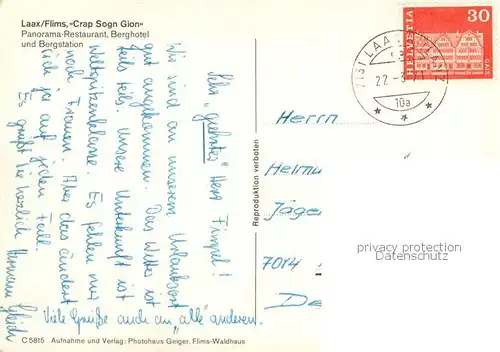 Laax/Flims, «Crap Sogn Gion»
Panorama-Restaurant, Berghotel
und Bergstation
Sehr "geehrter" Herr Fingel!
Wir sind an unserem Urlaubsort
gut angekommen. Das Wetter ist
teils teils. Unsere Unterkunft ist
Weltspitzenklasse. Es fehlen nur
noch Frauen. Aber das ändert
sich ja auf jeden Fall.
Es grüßt Sie herzlich
Hermann
Viele Grüße auch an "alle" anderen.
C 5815 Aufnahme und Verlag: Photohaus Geiger, Flims-Waldhaus
Reproduktion verboten
HELVETIA
30
GAIS
7131 LAA
22
10a
Herrn
Helmu
Jäger
7014
De
privacy protection
Datenschutz